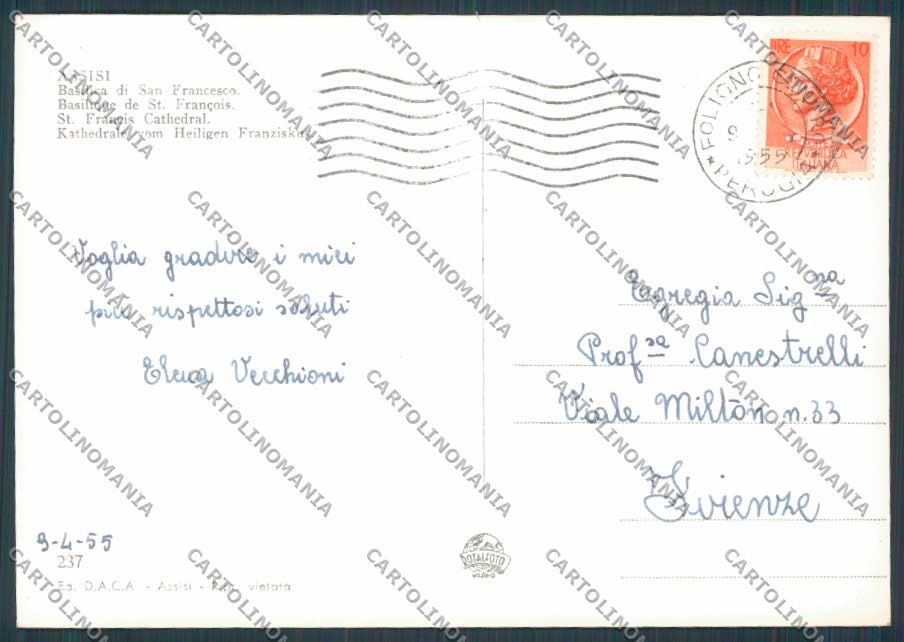 ASSISI
Basilica di San Francesco.
Basilique de St. François.
St. Francis Cathedral.
Kathedrale vom Heiligen Franziskus
Voglia gradire i miei
più rispettosi saluti
Elena Vecchioni
9-4-55
237
Ed. D.A.C.A - Assisi - Rip. vietata
ROTALFOTO
MILANO
LIRE 10
REPVBBLICA
ITALIANA
FOLIGNO
9 4
1955
PERUGIA
Egregia Sig.na
Prof.sa Canestrelli
Viale Milton n.33
Firenze
CARTOLINOMANIA